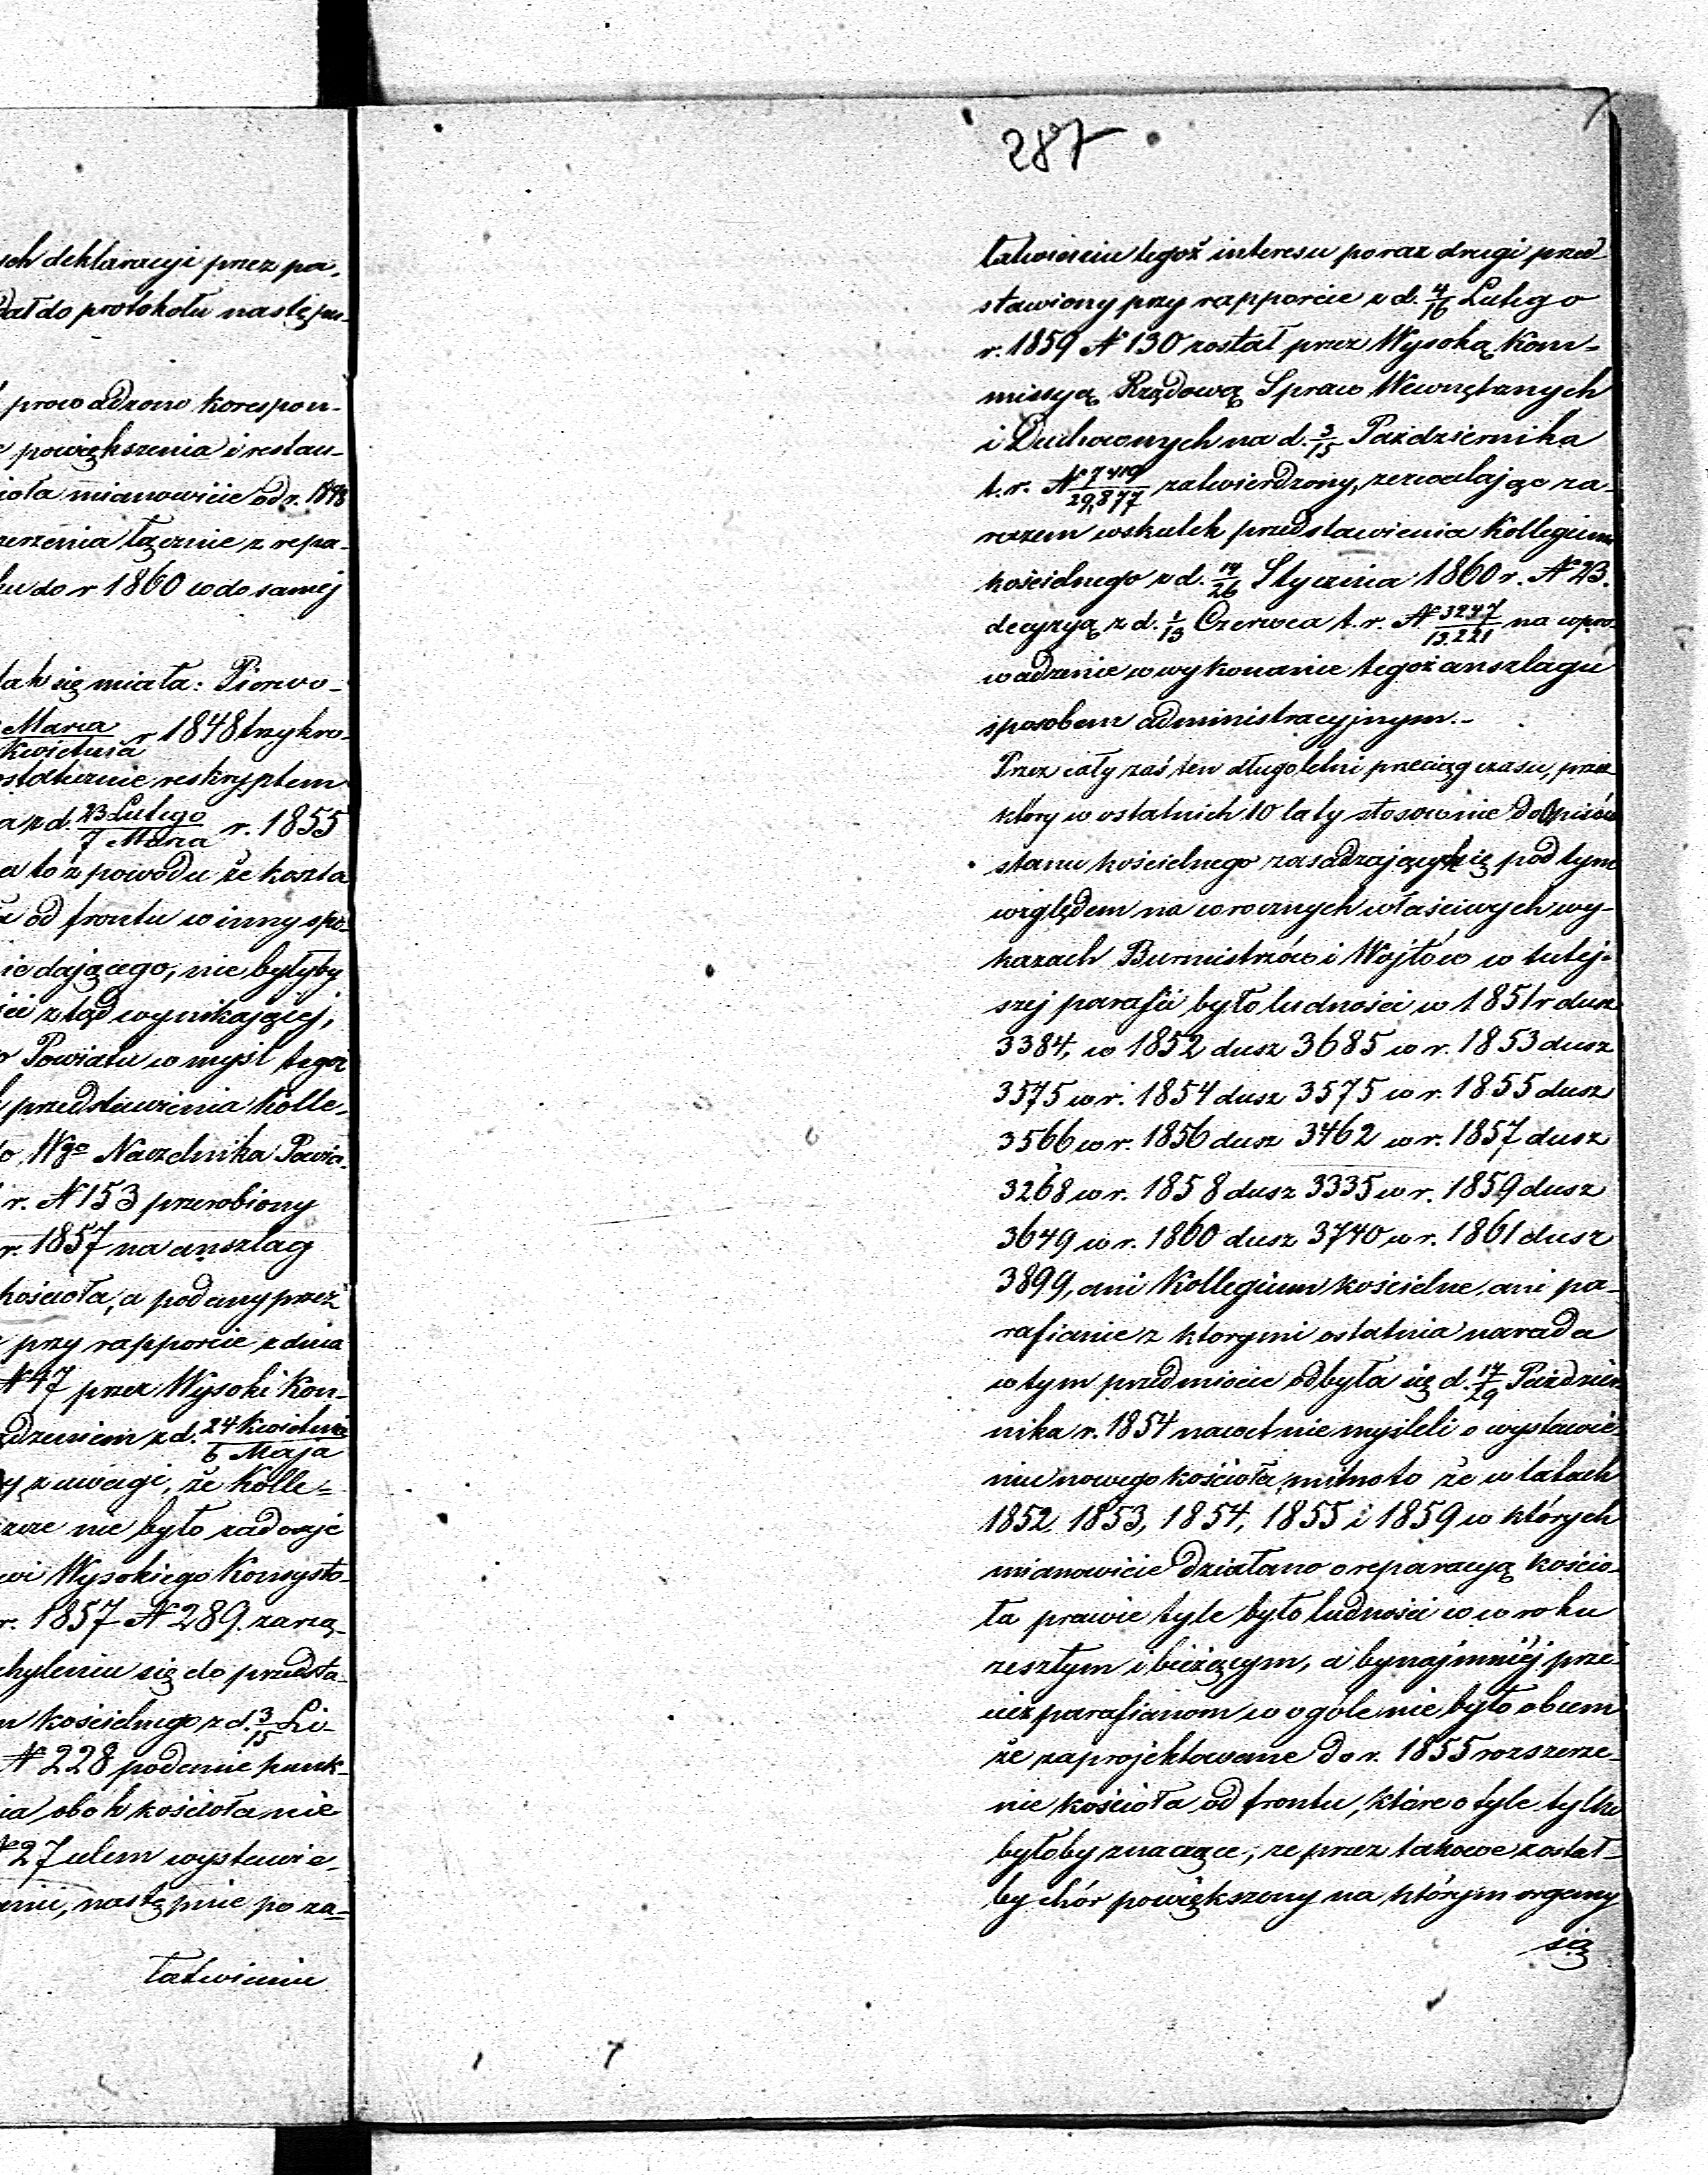 sch deklaracyi przez pa,
dał do protokołu następu-
prowadzono korespon-
powiększenia i restau-
mianowicie od r. 1848
łącznie z repa-
do r 1860 w do samej
tak się miała: Pierwo-
Marca / Kwietnia r 1848 trzykro-
ostatecznie reskryptem
z d. 23 Lutego / 7 Marca r. 1855
a to z powodu że koszta
od frontu w inny spo-
dającego, nie byłyby
ztąd wynikającej,
Powiatu w myśl tegoż
przedstawienia Kolle-
Wgo Naczelnika Powia-
r. N 153 przerobiony
r. 1857 na anszlag
kościoła, a podany przez
przy rapporcie z dnia
N 47 przez Wysoki Kon-
z d. 24 Kwietnia / 6 Maja
z uwagi, że Kolle=
nie było zadosyć
Wysokiego Konsysto-
r. 1857 N 289. zarzą-
chyleniu się do przedsta-
kościelnego z d. 3/15 Li-
N 228 podanie punk-
obok kościoła nie
N 27 celem wystawie-
następnie po za=
łatwieniu
287
łatwieniu tegoż interesu poraz drugi przed
stawiony przy rapporcie z d. 4/16 Lutego
r. 1859 N 130 został przez Wysoką Kom-
missyą Rządową Spraw Wewnętrznych
i Duchownych na d. 3/15 Października
t. r. N 7419/29,877 zatwierdzony, zezwalając za-
razem wskutek przedstawienia Kollegium
kościelnego z d. 14/26 Stycznia 1860 r. N 23.
decyzyą z d. 1/13 Czerwca t. r. N 3247/13.221 na wpro-
wadzenie w wykonanie tegoż anszlagu
sposobem administracyjnym.-
Przez cały zaś ten długoletni przeciąg czasu, przez
który w ostatnich 10 laty stosownie do Opisów
stanu kościelnego zasadzających się pod tym
względem na corocznych właściwych wy-
kazach Burmistrzów i Wójtów w tutej-
szej parafii było ludności w 1851 r dusz
3384, w 1852 dusz 3685 w r. 1853 dusz
3575 w r. 1854 dusz 3575 w r. 1855 dusz
3566 w r. 1856 dusz 3462 w r. 1857 dusz
3268 w r. 1858 dusz 3335 w r. 1859 dusz
3649 w r. 1860 dusz 3740 w r. 1861 dusz
3899, ani Kollegium kościelne, ani pa-
rafianie z ktorymi ostatnia narada
w tym przedmiocie odbyła się d. 17/29 Paździer-
nika r. 1854 nawet nie myśleli o wystawie-
niu nowego kościoła, mimo to że w latach
1852, 1853, 1854, 1855 i 1859 w których
mianowicie działano o reparacyą kościo-
ła prawie tyle było ludności co w roku
zeszłym i bieżącym, a bynajmniej prze-
cież parafianom w ogóle nie było obcem
że zaprojektowane do r. 1855 rozszerze-
nie kościoła od frontu, które o tyle tylko
byłoby znaczące, że przez takowe został-
by chór powiększony na którym organy
się